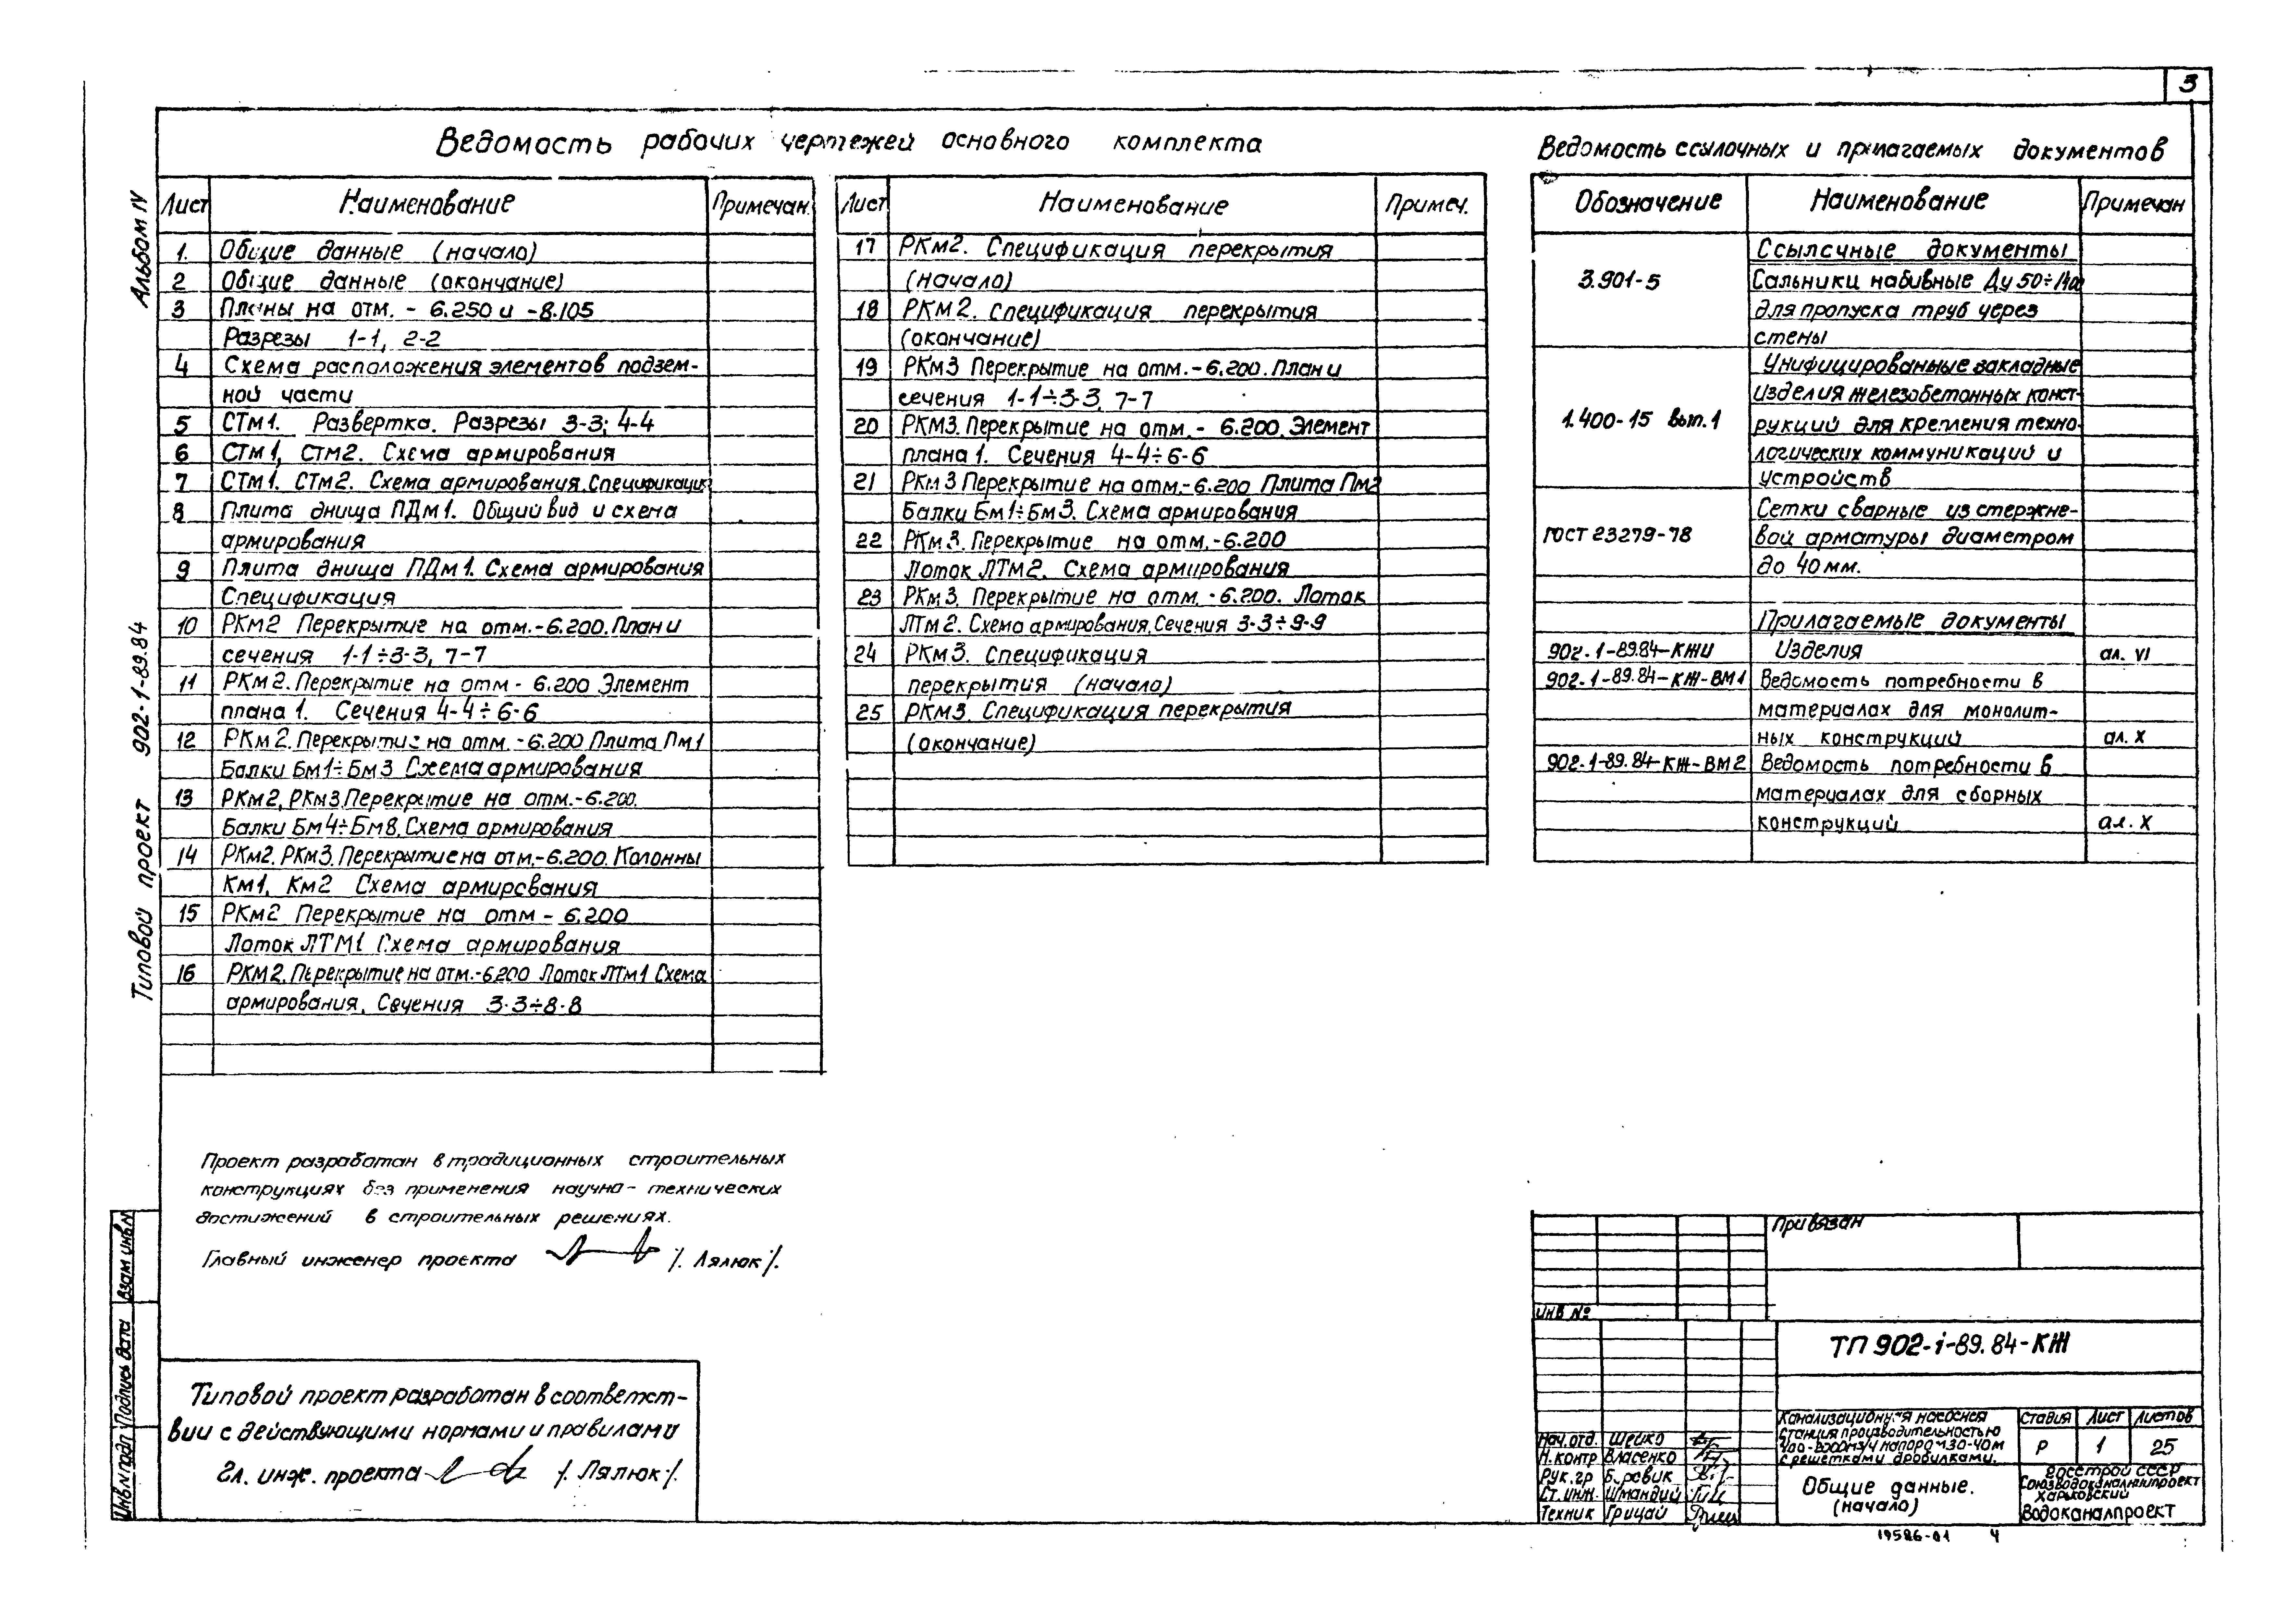 3
Ведомость рабочих чертежей основного комплекта
Лист Наименование Примечан.
1. Общие данные (начало)
2 Общие данные (окончание)
3 Планы на отм. - 6.250 и -8.105
Разрезы 1-1, 2-2
4 Схема расположения элементов подзем-
ной части
5 СТм1. Развертка. Разрезы 3-3; 4-4
6 СТм1, СТм2. Схема армирования
7 СТм1. СТм2. Схема армирования. Спецификация
8 Плита днища ПДм1. Общий вид и схема
армирования
9 Плита днища ПДм1. Схема армирования
Спецификация
10 РКм2 Перекрытие на отм.-6.200. План и
сечения 1-1÷3-3, 7-7
11 РКм2. Перекрытие на отм - 6.200 Элемент
плана 1. Сечения 4-4÷6-6
12 РКм2. Перекрытие на отм. -6.200 Плита Пм1
Балки Бм1÷Бм3 Схема армирования
13 РКм2, РКм3 Перекрытие на отм.-6.200.
Балки Бм4÷Бм8. Схема армирования
14 РКм2. РКм3. Перекрытие на отм.-6.200. Колонны
Км1, Км2 Схема армирования
15 РКм2 Перекрытие на отм - 6.200
Лоток ЛТМ1 Схема армирования
16 РКМ2. Перекрытие на отм.-6.200 Лоток ЛТм1 Схема
армирования. Сечения 3-3÷8-8
Лист Наименование Примеч.
17 РКм2. Спецификация перекрытия
(начало)
18 РКм2. Спецификация перекрытия
(окончание)
19 РКм3 Перекрытие на отм.-6.200. План и
сечения 1-1÷3-3, 7-7
20 РКм3. Перекрытие на отм.- 6.200. Элемент
плана 1. Сечения 4-4÷6-6
21 РКм3 Перекрытие на отм.-6.200 Плита Пм2
Балки Бм1÷Бм3. Схема армирования
22 РКм3. Перекрытие на отм.-6.200
Лоток ЛТм2. Схема армирования
23 РКм3. Перекрытие на отм. -6.200. Лоток
ЛТм2. Схема армирования. Сечения 3-3÷9-9
24 РКм3. Спецификация
перекрытия (начало)
25 РКм3. Спецификация перекрытия
(окончание)
Ведомость ссылочных и прилагаемых документов
Обозначение Наименование Примечан
Ссылочные документы
3.901-5 Сальники набивные Ду 50÷1400
для пропуска труб через
стены
Унифицированные закладные
изделия железобетонных конст-
1.400-15 вып.1 рукций для крепления техно-
логических коммуникаций и
устройств
Сетки сварные из стержне-
ГОСТ 23279-78 вой арматуры диаметром
до 40мм.
Прилагаемые документы
902.1-89.84-КЖИ Изделия ал. VI
902.1-89.84-КЖ-ВМ1 Ведомость потребности в
материалах для монолит-
ных конструкций ал. X
902.1-89.84-КЖ-ВМ2 Ведомость потребности в
материалах для сборных
конструкций ал. X
Альбом IV
Типовой проект 902-1-89.84
Проект разработан в традиционных строительных
конструкциях без применения научно-технических
достижений в строительных решениях.
Главный инженер проекта /. Лялюк /.
Типовой проект разработан в соответст-
вии с действующими нормами и правилами
Гл. инж. проекта /. Лялюк /.
Взам инв.N
Подпись дата
Инв.N подл
Привязан
Инв №
ТП 902-1-89.84-КЖ
Нач.отд. Шейко
Н.контр Власенко
Рук.гр Боровик
Ст.инж. Шмандий
Техник Грицай
Канализационная насосная
станция производительностью
напором 30-40м
с решетками дробилками.
Стадия Лист Листов
Р 1 25
Общие данные.
(начало)
Госстрой СССР
Союзводоканалниипроект
Харьковский
Водоканалпроект
19586-01 4